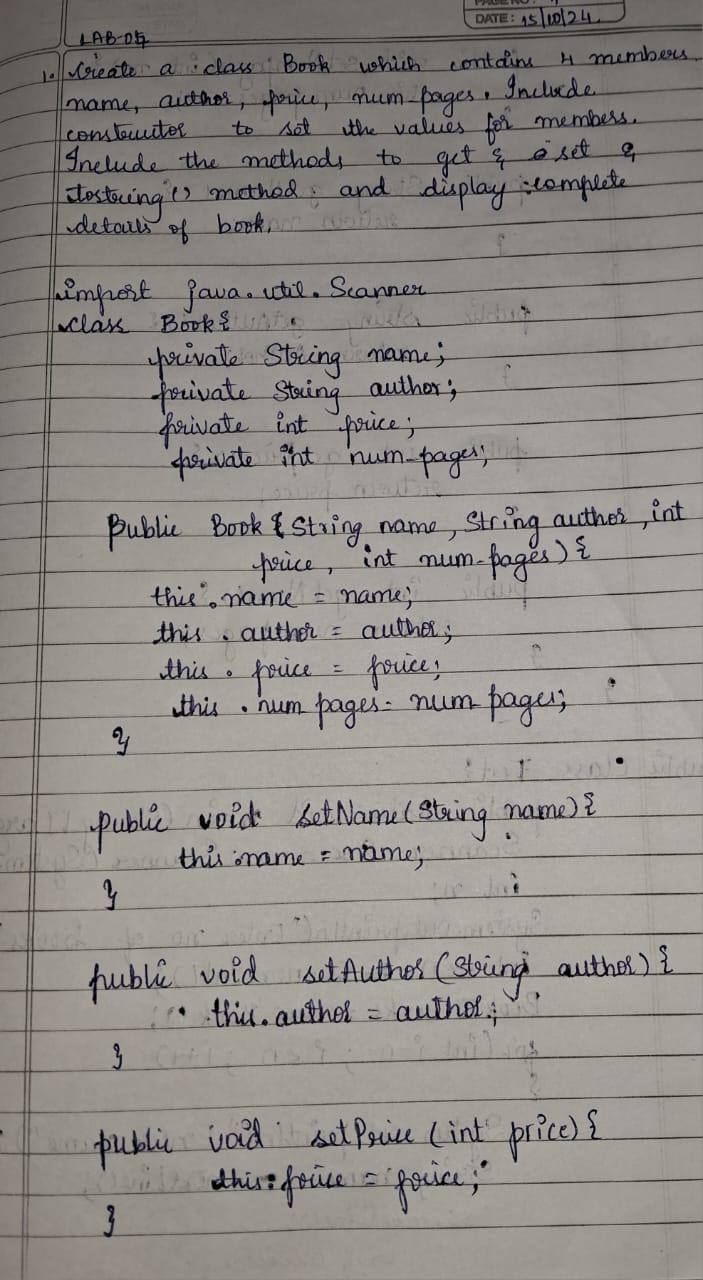 PAGE NO:
DATE: 15/10/24
LAB-05
1. Create a class Book which contains 4 members
name, author, price, num-pages. Include
constructor to set the values for members.
Include the methods to get & set &
tostring() method and display complete
details of book.
import java.util.Scanner
class Book{
private String name;
private String author;
private int price;
private int num-pages;
Public Book { String name, String author, int
price, int num-pages) {
this.name = name;
this.author = author;
this.price = price;
this.num pages = num pages;
}
public void setName(String name){
this.name = name;
}
public void setAuthor (String author) {
this.author = author;
}
public void setPrice (int price) {
this.price = price;
}